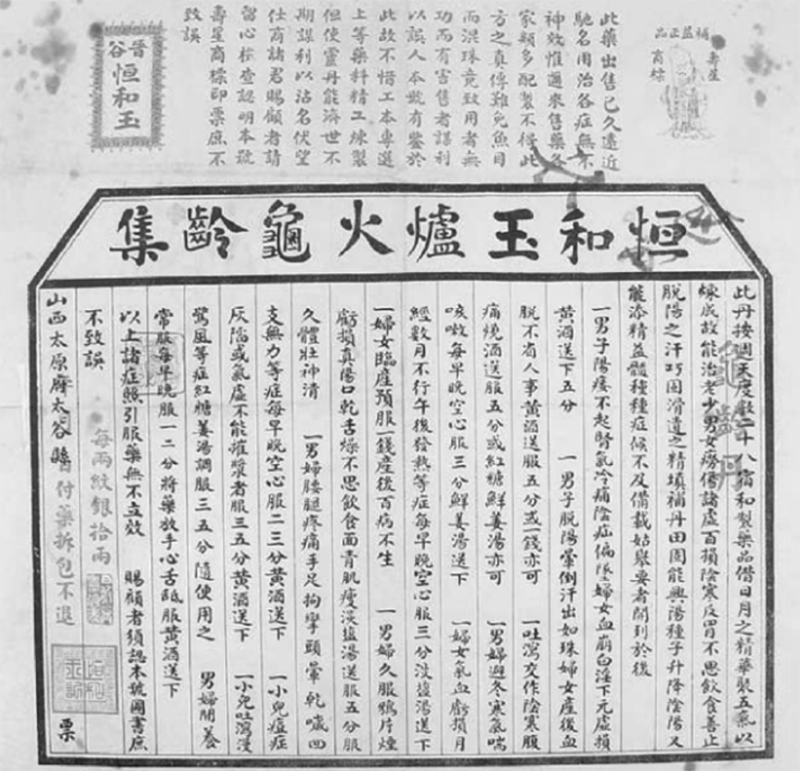 補益正品
壽星
商標
此藥出售已久遠近
馳名用治各症無不
神效惟邇來售藥各
家類多配製不得此
方之真傳難免魚目
而混珠竟致用者無
功而有害售者謀利
以誤人本號有鑒於
此故不惜工本專選
上等藥料精工煉製
但使靈丹能濟世不
期謀利以沽名伏望
仕商諸君賜顧者請
留心檢查認明本號
壽星商標即票庶不
致誤
晉谷
恒和玉
恒和玉爐火龜齡集
此丹按週天度數二十八宿和製藥品借日月之精華製五氣以
煉成故能治老少男女癆傷諸虛百損陰寒反胃不思飲食善止
脫陽之汗巧固滑遺之精填補丹田固能興陽種子升降陰陽又
能添精益髓種種症候不及備載姑舉要者開列於後
一男子陽痿不起腎氣冷痛陰症偏墜婦女血崩白淫下元虛損
黃酒送下五分　一男子脫陽暈倒汗出如珠婦女產後血
脫不省人事黃酒送服五分或一錢亦可　一吐瀉交作陰寒腹
痛燒酒送服五分或紅糖鮮姜湯亦可　一男婦避冬寒氣喘
咳嗽每早晚空心服三分鮮姜湯送下　一婦女氣血虧損月
經數月不行午後發熱等症每早晚空心服三分淡塩湯送下
一婦女臨產預服一錢產後百病不生　一男婦久服鴉片煙
虧損真陽口乾舌燥不思飲食面青肌瘦淡塩湯送服五分服
久體壯神清　一男婦腰腿疼痛手足拘攣頭暈乾嘔四
支無力等症每早晚空心服二三分黃酒送下　一小兒瘟症
灰陷或氣虛不能摧漿者服三五分黃酒送下　一小兒吐瀉漫
驚風等症紅糖姜湯調服三五分隨便用之　男婦閒養
常服每早晚服一二分將藥放手心舌舐服黃酒送下
以上諸症照引服藥無不立效　賜顧者須認本號圖書庶
不致誤
每兩紋銀拾兩
山西太原府太谷縣
付藥拆包不退
票